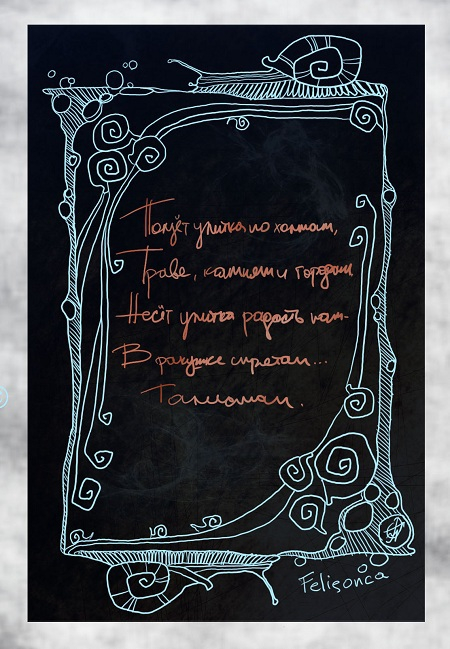 Ползёт улитка по холмам,
Траве, камням и городам
Несёт улитка радость нам-
В ракушке спрятан...
Талисман.
Felisonca